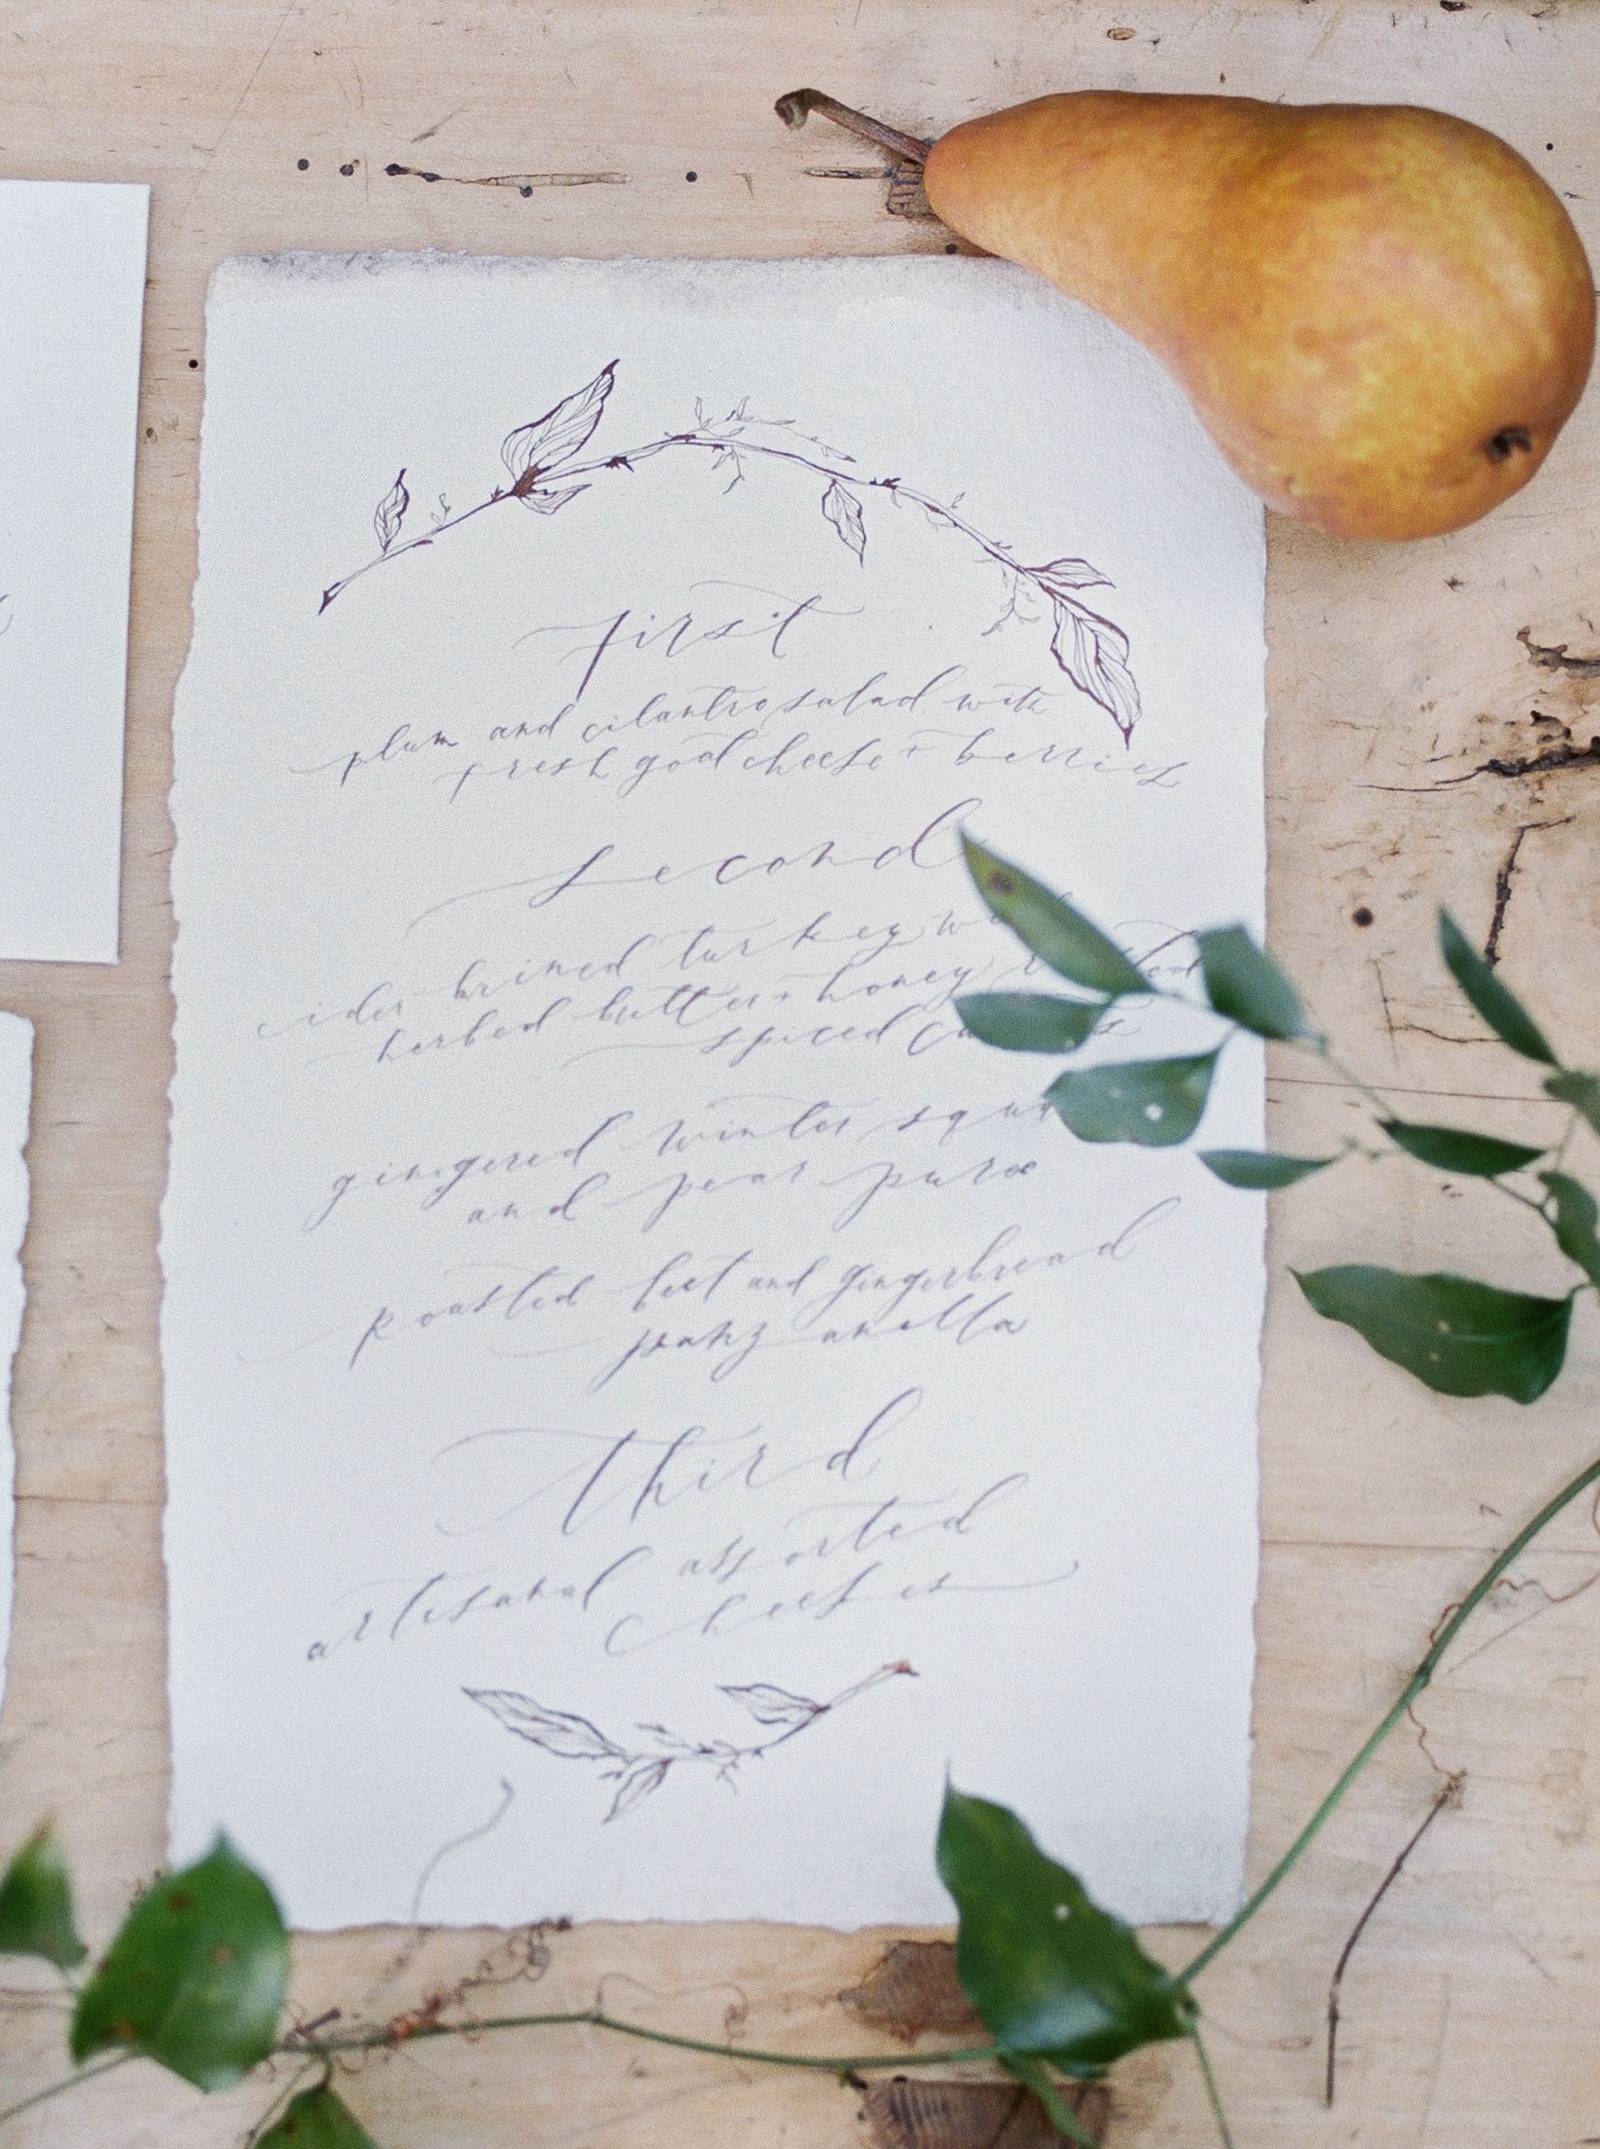 first
plum and cilantro salad with
fresh goat cheese + berries
second
cider brined turkey
herbed butter + honey
spiced
gingered winter
and pear purée
roasted beet and gingerbread
panzanella
third
artisanal assorted
cheeses